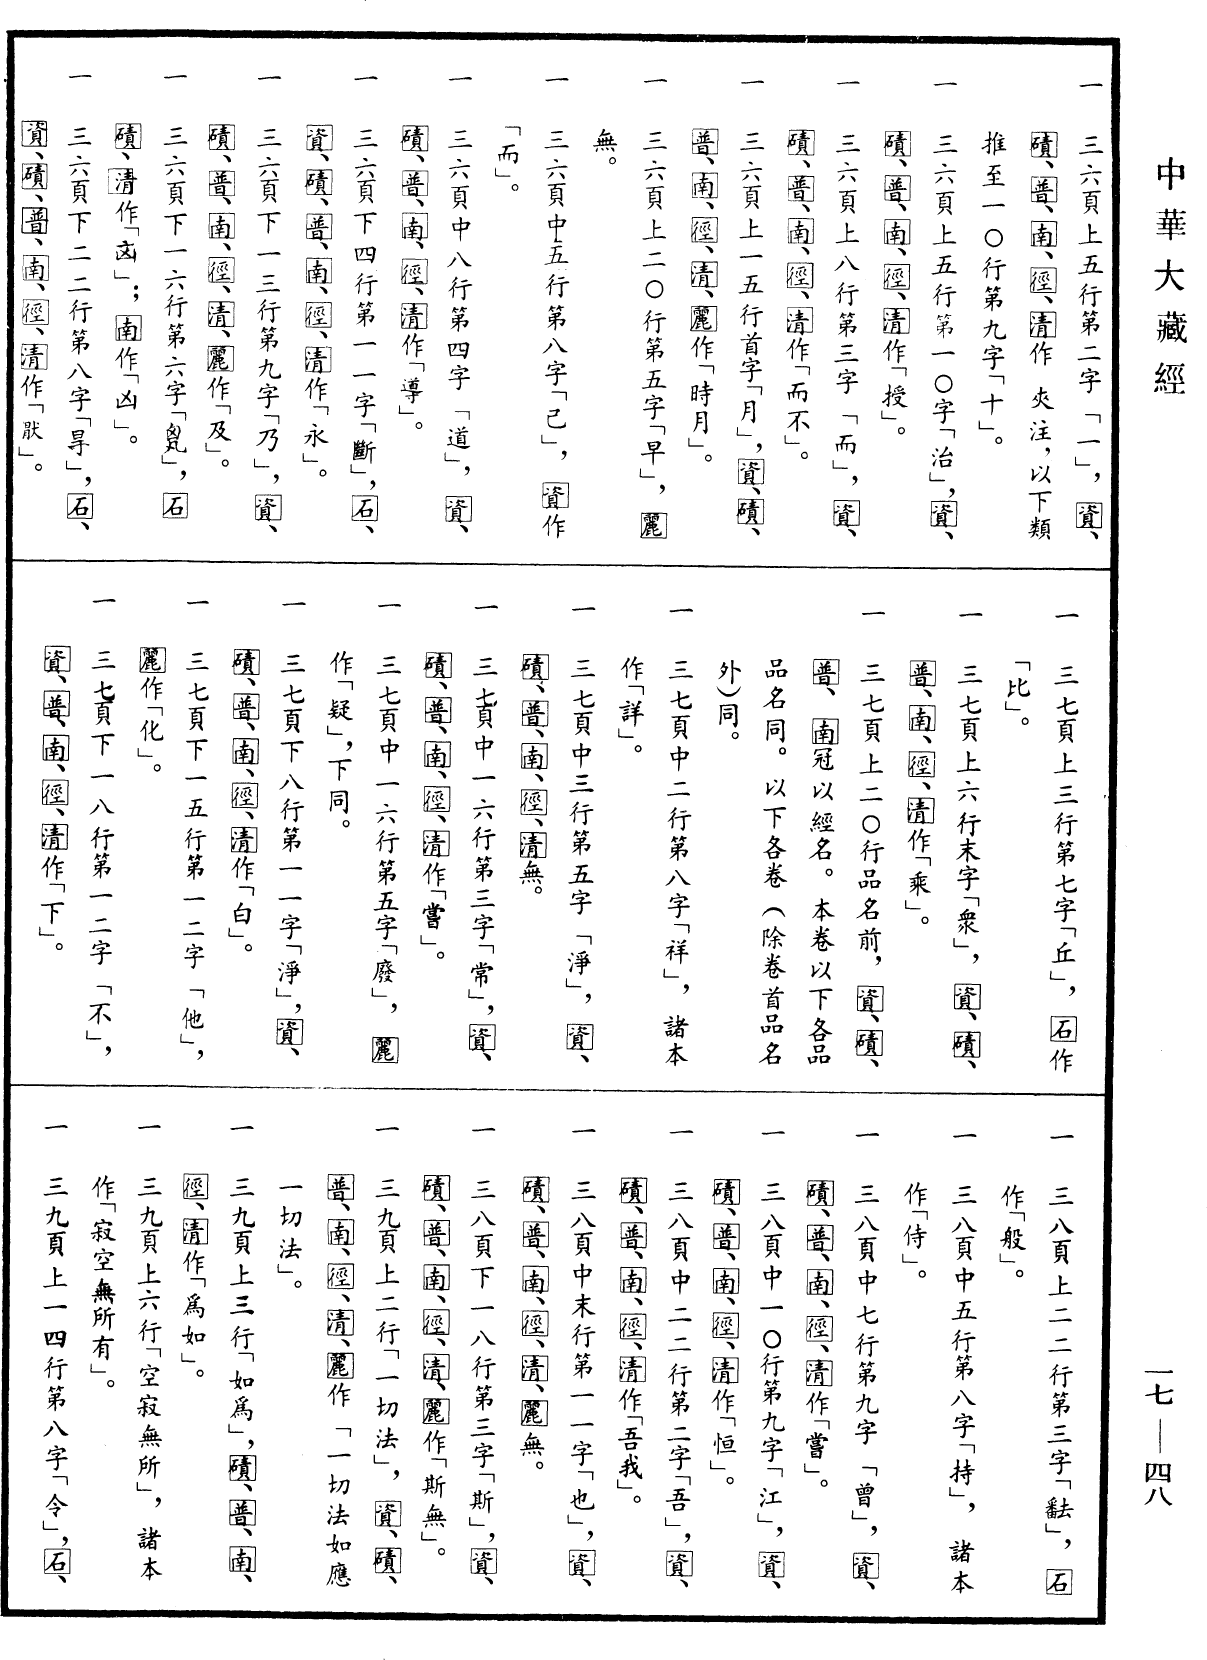 中華大藏經
一 三六頁上五行第二字「一」，資、
磧、普、南、徑、清作夾注，以下類
推至一〇行第九字「十」。
一 三六頁上五行第一〇字「治」，資、
磧、普、南、徑、清作「授」。
一 三六頁上八行第三字「而」，資、
磧、普、南、徑、清作「而不」。
一 三六頁上一五行首字「月」，資、磧、
普、南、徑、清、麗作「時月」。
一 三六頁上二〇行第五字「早」，麗
無。
一 三六頁中五行第八字「己」，資作
「而」。
一 三六頁中八行第四字「道」，資、
磧、普、南、徑、清作「導」。
一 三六頁下四行第一一字「斷」，石、
資、磧、普、南、徑、清作「永」。
一 三六頁下一三行第九字「乃」，資、
磧、普、南、徑、清、麗作「及」。
一 三六頁下一六行第六字「㐫」，石
磧、清作「㐫」；南作「凶」。
一 三六頁下二二行第八字「㫖」，石、
資、磧、普、南、徑、清作「猒」。
一 三七頁上三行第七字「丘」，石作
「比」。
一 三七頁上六行末字「衆」，資、磧、
普、南、徑、清作「乘」。
一 三七頁上二〇行品名前，資、磧、
普、南冠以經名。本卷以下各品
品名同。以下各卷（除卷首品名
外）同。
一 三七頁中二行第八字「祥」，諸本
作「詳」。
一 三七頁中三行第五字「淨」，資、
磧、普、南、徑、清無。
一 三七頁中一六行第三字「常」，資、
磧、普、南、徑、清作「嘗」。
一 三七頁中一六行第五字「廢」，麗
作「疑」，下同。
一 三七頁下八行第一一字「淨」，資、
磧、普、南、徑、清作「白」。
一 三七頁下一五行第一二字「他」，
麗作「化」。
一 三七頁下一八行第一二字「不」，
資、普、南、徑、清作「下」。
一 三八頁上二二行第三字「䭵」，石
作「般」。
一 三八頁中五行第八字「持」，諸本
作「侍」。
一 三八頁中七行第九字「曾」，資、
磧、普、南、徑、清作「嘗」。
一 三八頁中一〇行第九字「江」，資、
磧、普、南、徑、清作「恒」。
一 三八頁中二二行第二字「吾」，資、
磧、普、南、徑、清作「吾我」。
一 三八頁中末行第一一字「也」，資、
磧、普、南、徑、清、麗無。
一 三八頁下一八行第三字「斯」，資、
磧、普、南、徑、清、麗作「斯無」。
一 三九頁上二行「一切法」，資、磧、
普、南、徑、清、麗作「一切法如應
一切法」。
一 三九頁上三行「如爲」，磧、普、南、
徑、清作「爲如」。
一 三九頁上六行「空寂無所」，諸本
作「寂空無所有」。
一 三九頁上一四行第八字「令」，石、
一七—四八